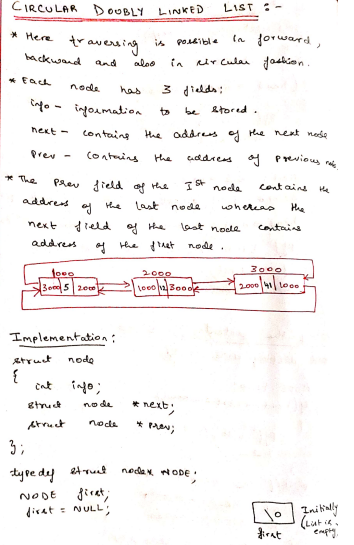 CIRCULAR DOUBLY LINKED LIST :-
* Here traversing is possible in forward,
backward and also in circular fashion.
* Each node has 3 fields:
info - information to be stored.
next - contains the address of the next node
prev - contains the address of previous node.
* The prev field of the Ist node contains the
address of the last node whereas the
next field of the last node contains
address of the first node.
1000 2000 3000
3000 5 2000 1000 12 3000 2000 41 1000
Implementation:
struct node
{
int info;
struct node *next;
struct node *prev;
};
typedef struct node* NODE;
NODE first;
first = NULL;
\0 Initially
(List is
first empty